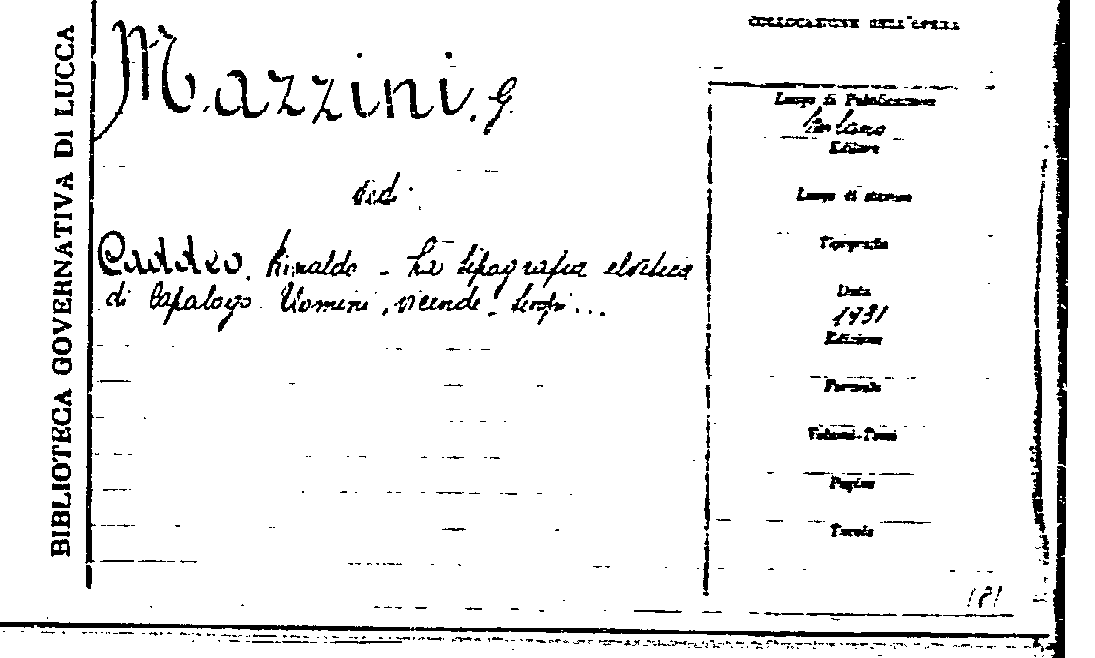 BIBLIOTECA GOVERNATIVA DI LUCCA
COLLOCAZIONE DELL'OPERA
Mazzini, G.
Luogo di Pubblicazione
Milano
Editore
vedi.
Luogo di stampa
Caddeo, Rinaldo - La tipografia elvetica
di Capolago. Uomini, vicende, tempi...
Tipografia
Data
1931
Edizione
Formato
Volumi-Tomi
Pagine
Tavole
181